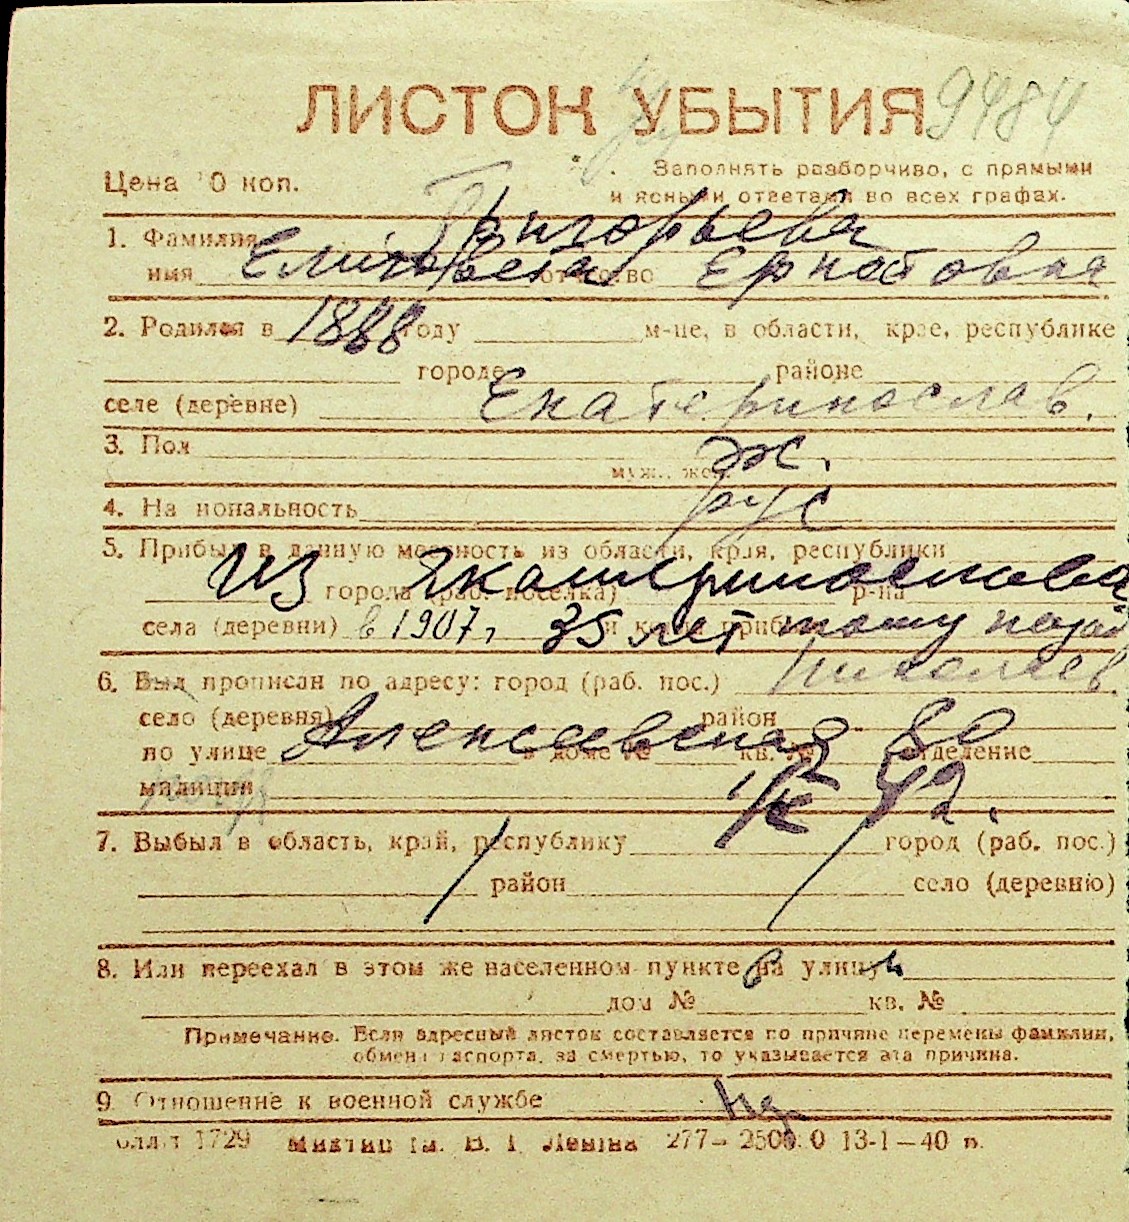 ЛИСТОК УБЫТИЯ 9484
Цена 10 коп.
Заполнять разборчиво, с прямыми
и ясными ответами во всех графах.
Григорьева
1. Фамилия
имя Елизавета отчество Ернстовна
2. Родился в 1888 году м-це, в области, крае, республике
городе районе
селе (деревне) Екатеринослав.
3. Пол ж.
муж., жен.
4. Национальность рус
5. Прибыл в данную местность из области, края, республики
Из Екатеринослава
города (раб. поселка) р-на
села (деревни) в 1907 г 35 лет и когда прибыл тому назад
6. Был прописан по адресу: город (раб. пос.) Николаев.
село (деревня) район
по улице Алексеевская 80 в доме № кв. № отделение
милиции
1/IX 42.
7. Выбыл в область, край, республику город (раб. пос.)
район село (деревню)
8. Или переехал в этом же населенном пункте на улицу
дом № кв. №
Примечание. Если адресный листок составляется по причине перемены фамилии,
обмена паспорта, за смертью, то указывается эта причина.
9. Отношение к военной службе
1729 им. В. І. Леніна 277— 13-1—40 р.